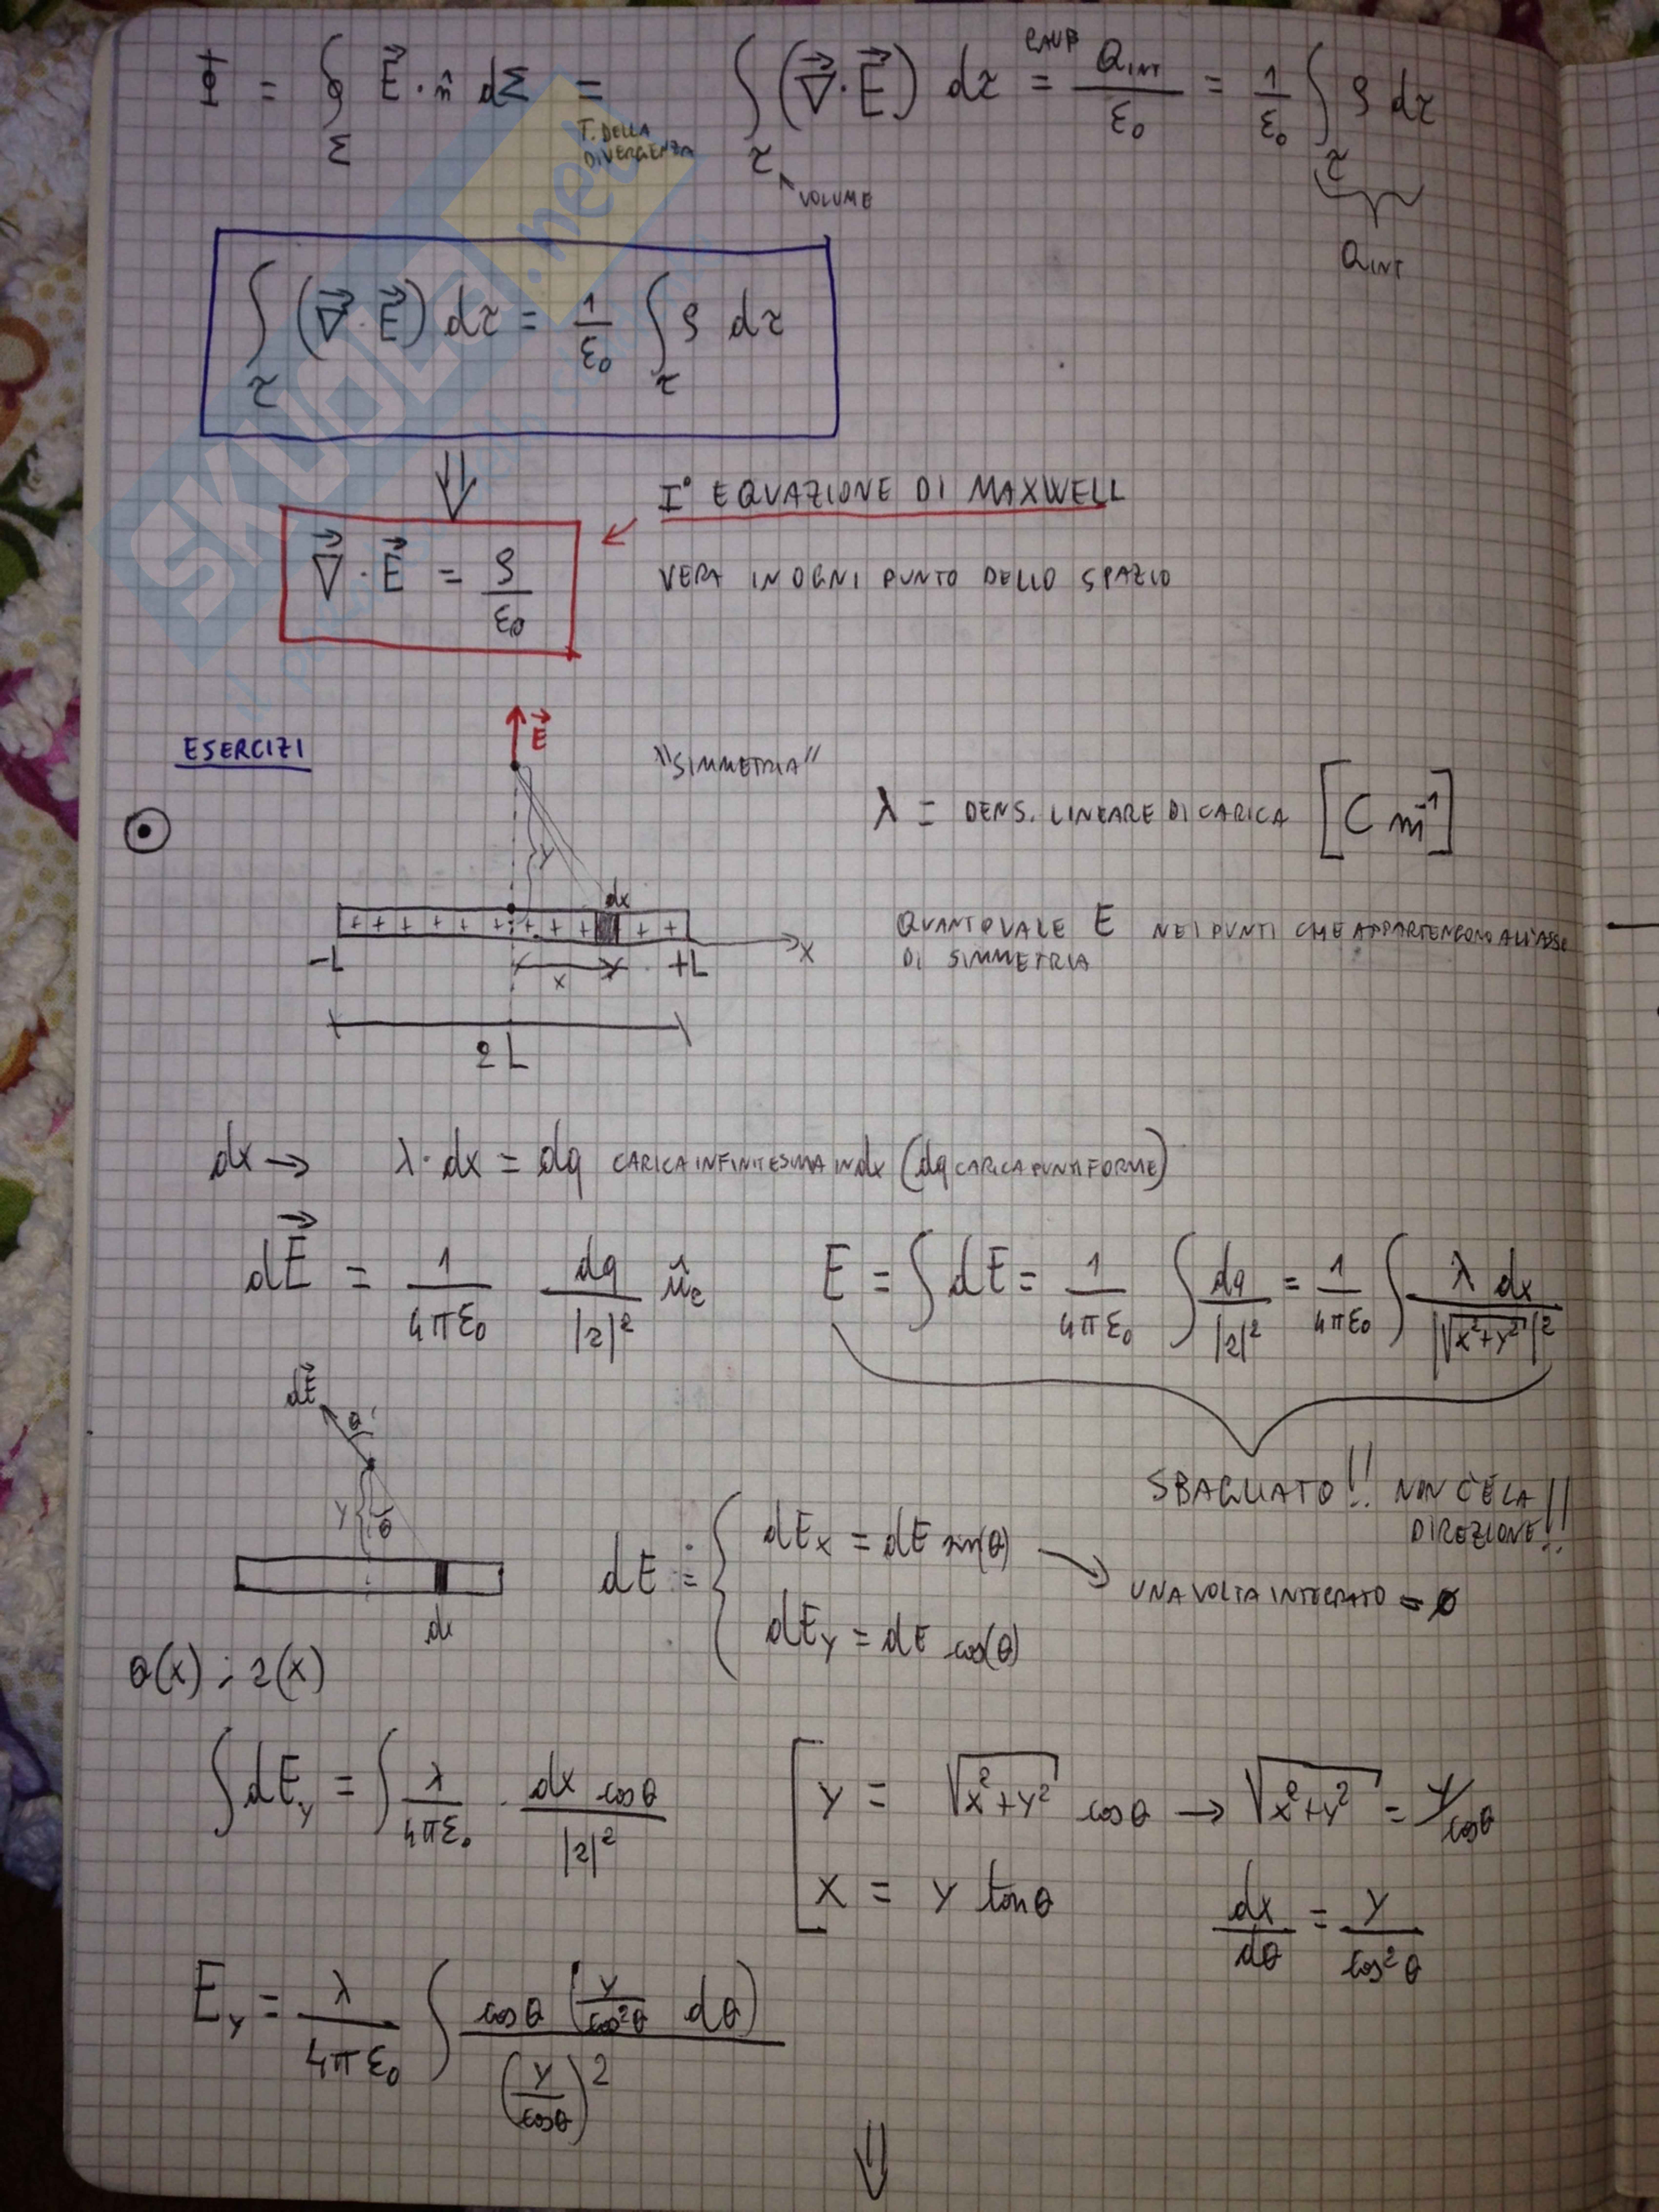 Φ = ∮_Σ E⃗ · n̂ dΣ = ∫_τ (∇⃗ · E⃗) dτ = Q_INT / ε₀ = 1/ε₀ ∫_τ ρ dτ
T. DELLA
DIVERGENZA
VOLUME
Q_INT
∫_τ (∇⃗ · E⃗) dτ = 1/ε₀ ∫_τ ρ dτ
⇓
I° EQUAZIONE DI MAXWELL
∇⃗ · E⃗ = ρ/ε₀
VERA IN OGNI PUNTO DELLO SPAZIO
SKUOLA.net
ESERCIZI
E⃗
"SIMMETRIA"
λ = DENS. LINEARE DI CARICA [C m⁻¹]
y
dx
+ + + + + + + + + + +
QUANTO VALE E NEI PUNTI CHE APPARTENGONO ALL'ASSE
DI SIMMETRIA
-L x +L x
2L
dx → λ · dx = dq CARICA INFINITESIMA IN dx (dq CARICA PUNTIFORME)
dE⃗ = 1/4πε₀ dq/|r|² û_r E = ∫ dE = 1/4πε₀ ∫ dq/|r|² = 1/4πε₀ ∫ λ dx/|√x²+y²|²
dE⃗
θ
y θ
SBAGLIATO!! NON C'È LA
DIREZIONE!!
dE = { dEx = dE sin(θ) → UNA VOLTA INTEGRATO = 0
dEy = dE cos(θ)
dx
θ(x) ; r(x)
∫ dEy = ∫ λ/4πε₀ · dx cosθ/|r|²
[ y = √x²+y² cosθ → √x²+y² = y/cosθ
x = y tanθ dx/dθ = y/cos²θ
Ey = λ/4πε₀ ∫ cosθ (y/cos²θ dθ) / (y/cosθ)²
⇓